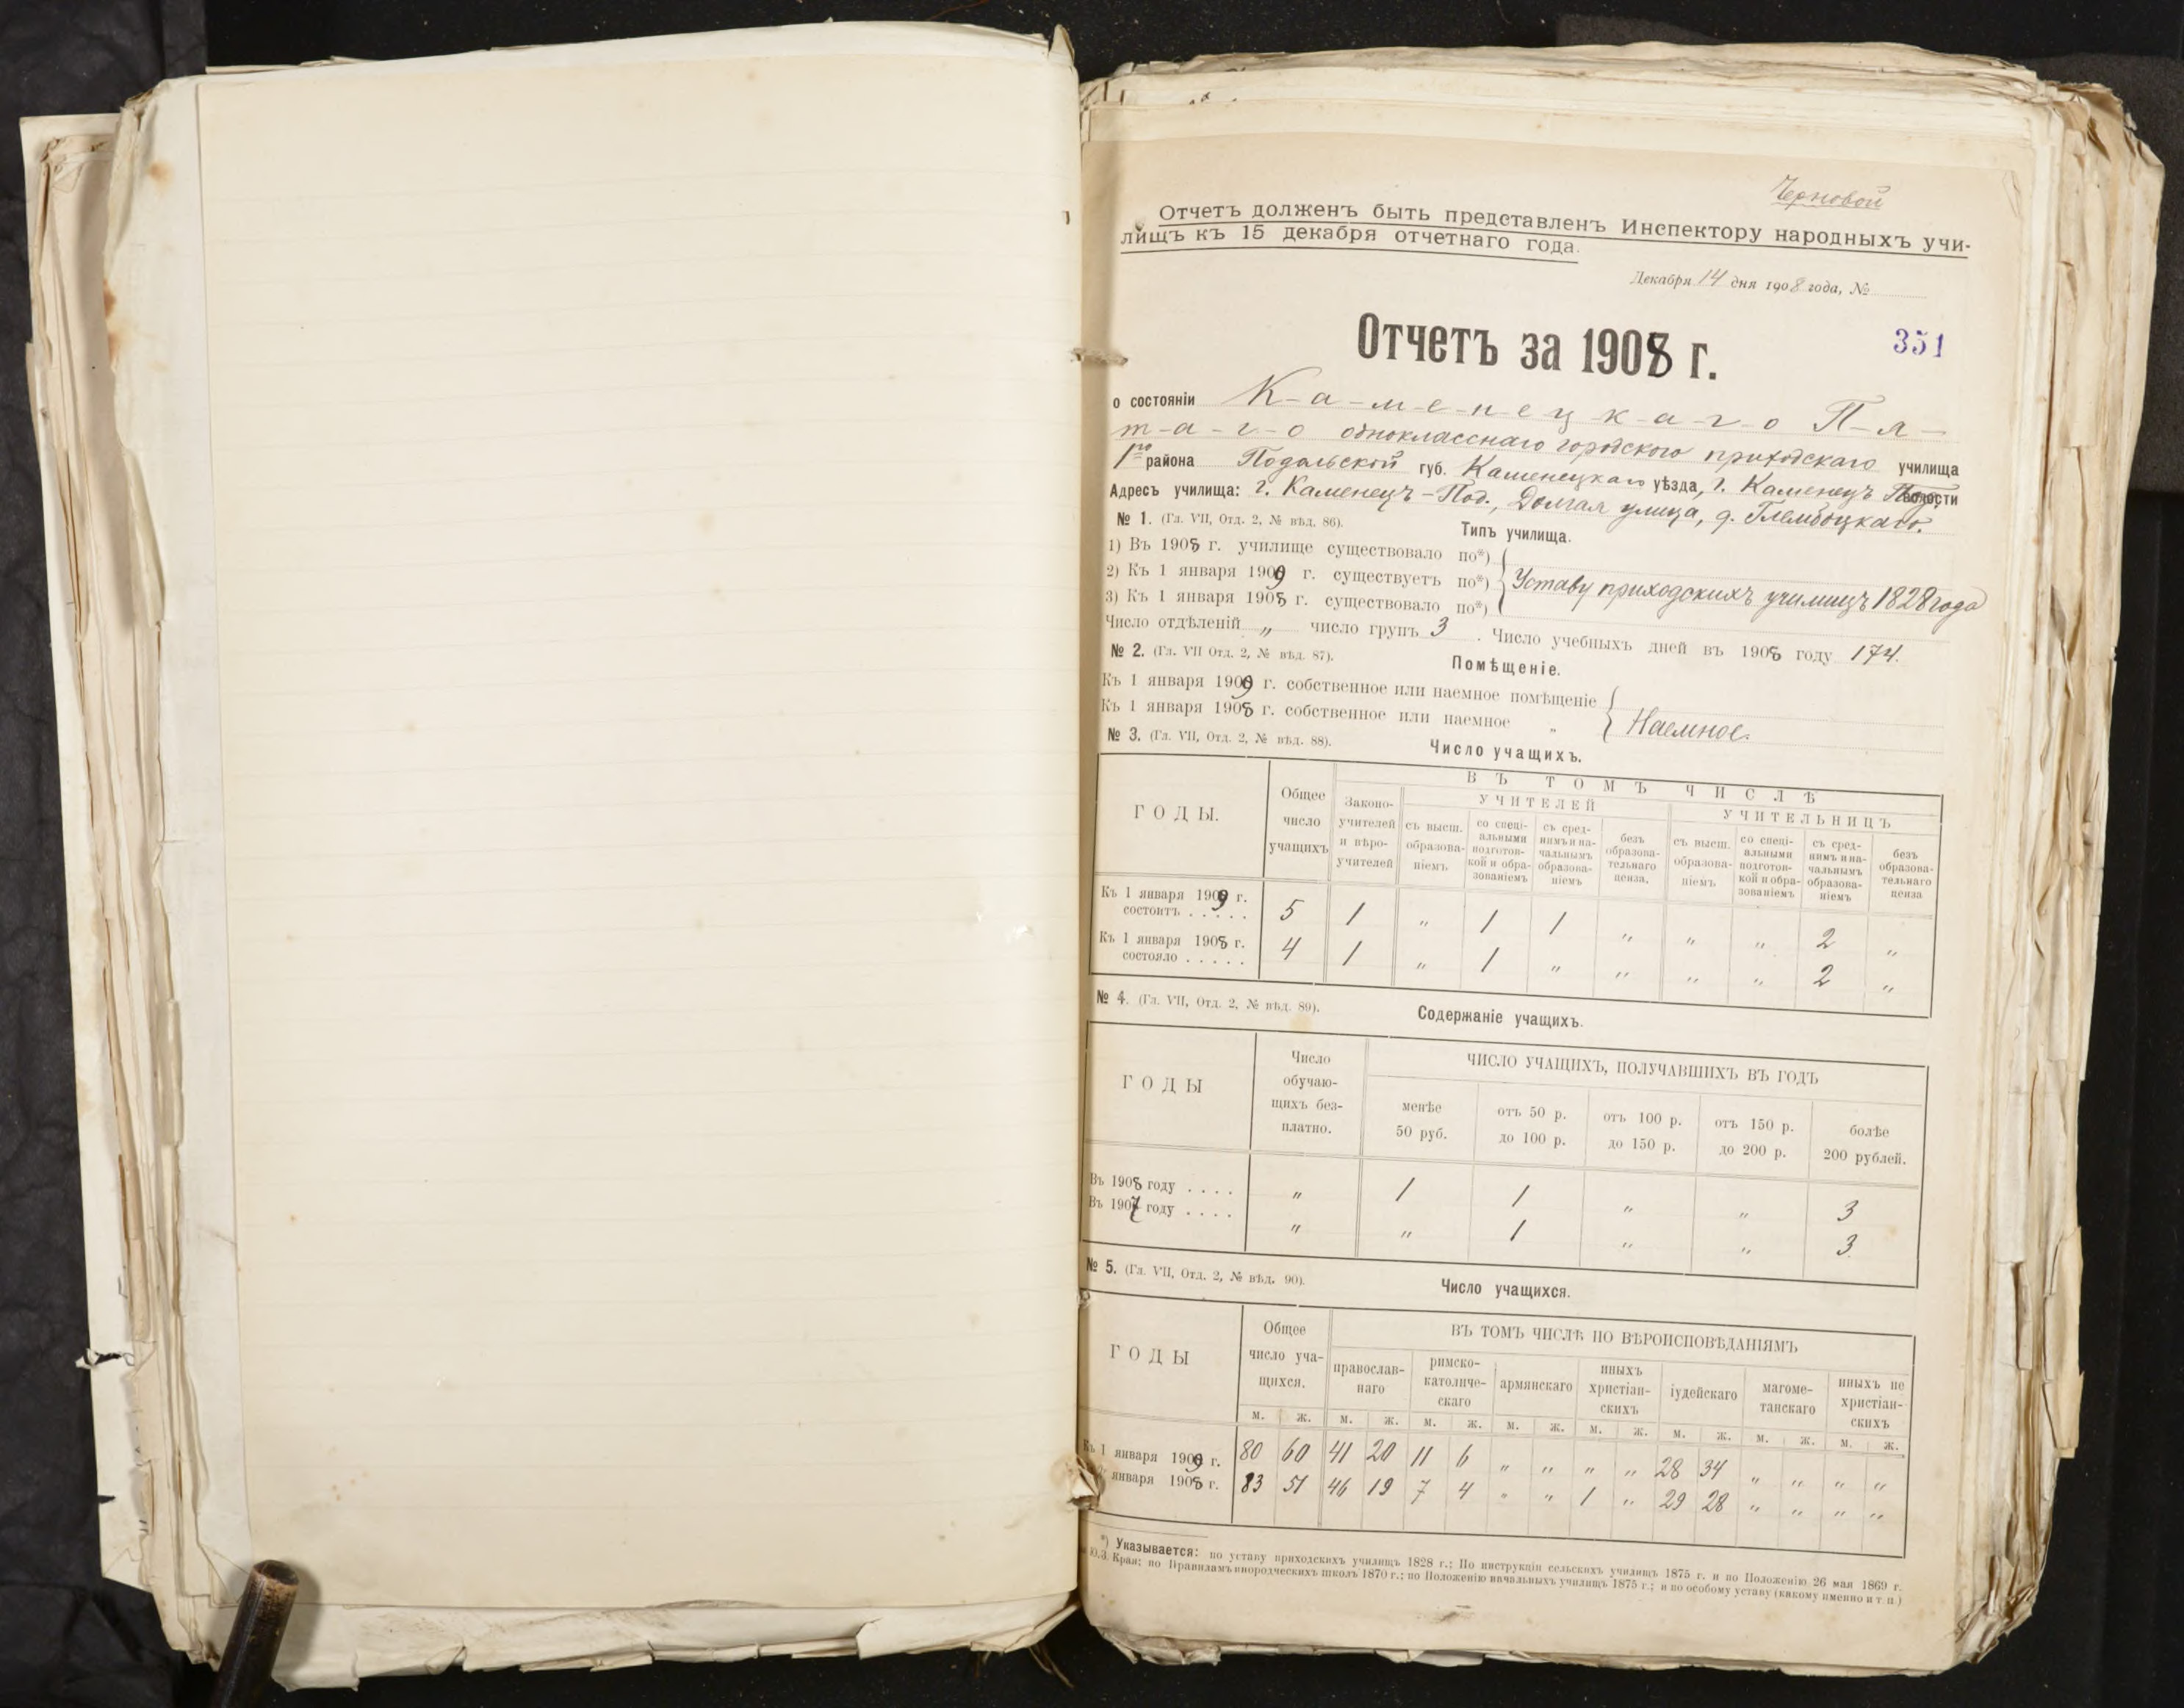 Черновой
Отчетъ долженъ быть представленъ Инспектору народныхъ учи-
лищъ къ 15 декабря отчетнаго года.
Декабря 14 дня 1908 года, №
Отчетъ за 1908 г.
351
о состояніи К-а-м-е-н-е-ц-к-а-г-о П-я-
т-а-г-о одноклasснаго городского приходскаго училища
1го района Подольской губ. Каменецкаго уѣзда, г. Каменецъ Под.
Адресъ училища: г. Каменецъ-Под., Долгая улица, д. Глембоцкаго.
№ 1. (Гл. VII, Отд. 2, № вѣд. 86). Типъ училища.
1) Въ 1908 г. училище существовало по*)
2) Къ 1 января 1909 г. существуетъ по*) Уставу приходскихъ училищъ 1828 года
3) Къ 1 января 1908 г. существовало по*)
Число отдѣленій „ число групъ 3. Число учебныхъ дней въ 1908 году 174.
№ 2. (Гл. VII Отд. 2, № вѣд. 87). Помѣщеніе.
Къ 1 января 1909 г. собственное или наемное помѣщеніе
Къ 1 января 1908 г. собственное или наемное „ Наемное.
№ 3. (Гл. VII, Отд. 2, № вѣд. 88). Число учащихъ.
ГОДЫ.
Общее
число
учащихъ
ВЪ ТОМЪ ЧИСЛѢ
Законо-
учителей
и вѣро-
учителей
УЧИТЕЛЕЙ
съ высш.
образова-
ніемъ
со спеці-
альными
подготов-
кой и обра-
зованіемъ
съ сред-
нимъ и на-
чальнымъ
образова-
ніемъ
безъ
образова-
тельнаго
ценза.
УЧИТЕЛЬНИЦЪ
съ высш.
образова-
ніемъ
со спеці-
альными
подготов-
кой и обра-
зованіемъ
съ сред-
нимъ и на-
чальнымъ
образова-
ніемъ
безъ
образова-
тельнаго
ценза
Къ 1 января 1909 г.
состоитъ . . . . . 5 1 „ 1 1 „ „ „ 2 „
Къ 1 января 1908 г.
состояло . . . . . 4 1 „ 1 „ „ „ „ 2 „
№ 4. (Гл. VII, Отд. 2, № вѣд. 89). Содержаніе учащихъ.
ГОДЫ
Число
обучаю-
щихъ без-
платно.
ЧИСЛО УЧАЩИХЪ, ПОЛУЧАВШИХЪ ВЪ ГОДЪ
менѣе
50 руб.
отъ 50 р.
до 100 р.
отъ 100 р.
до 150 р.
отъ 150 р.
до 200 р.
болѣе
200 рублей.
Въ 1908 году . . . . „ 1 1 „ „ 3
Въ 1907 году . . . . „ „ 1 „ „ 3
№ 5. (Гл. VII, Отд. 2, № вѣд. 90). Число учащихся.
ГОДЫ
Общее
число уча-
щихся.
ВЪ ТОМЪ ЧИСЛѢ ПО ВѢРОИСПОВѢДАНІЯМЪ
православ-
наго
римско-
католиче-
скаго
армянскаго
иныхъ
христіан-
скихъ
іудейскаго
магоме-
танскаго
иныхъ не
христіан-
скихъ
м. ж. м. ж. м. ж. м. ж. м. ж. м. ж. м. ж. м. ж.
Къ 1 января 1909 г. 80 60 41 20 11 6 „ „ „ „ 28 34 „ „ „ „
января 1908 г. 83 51 46 19 7 4 „ „ 1 „ 29 28 „ „ „ „
*) Указывается: по уставу приходскихъ училищъ 1828 г.; По инструкціи сельскихъ училищъ 1875 г. и по Положенію 26 мая 1869 г.
Ю.З. Края; по Правиламъ инородческихъ школъ 1870 г.; по Положенію начальныхъ училищъ 1875 г.; и по особому уставу (какому именно и т. п.)